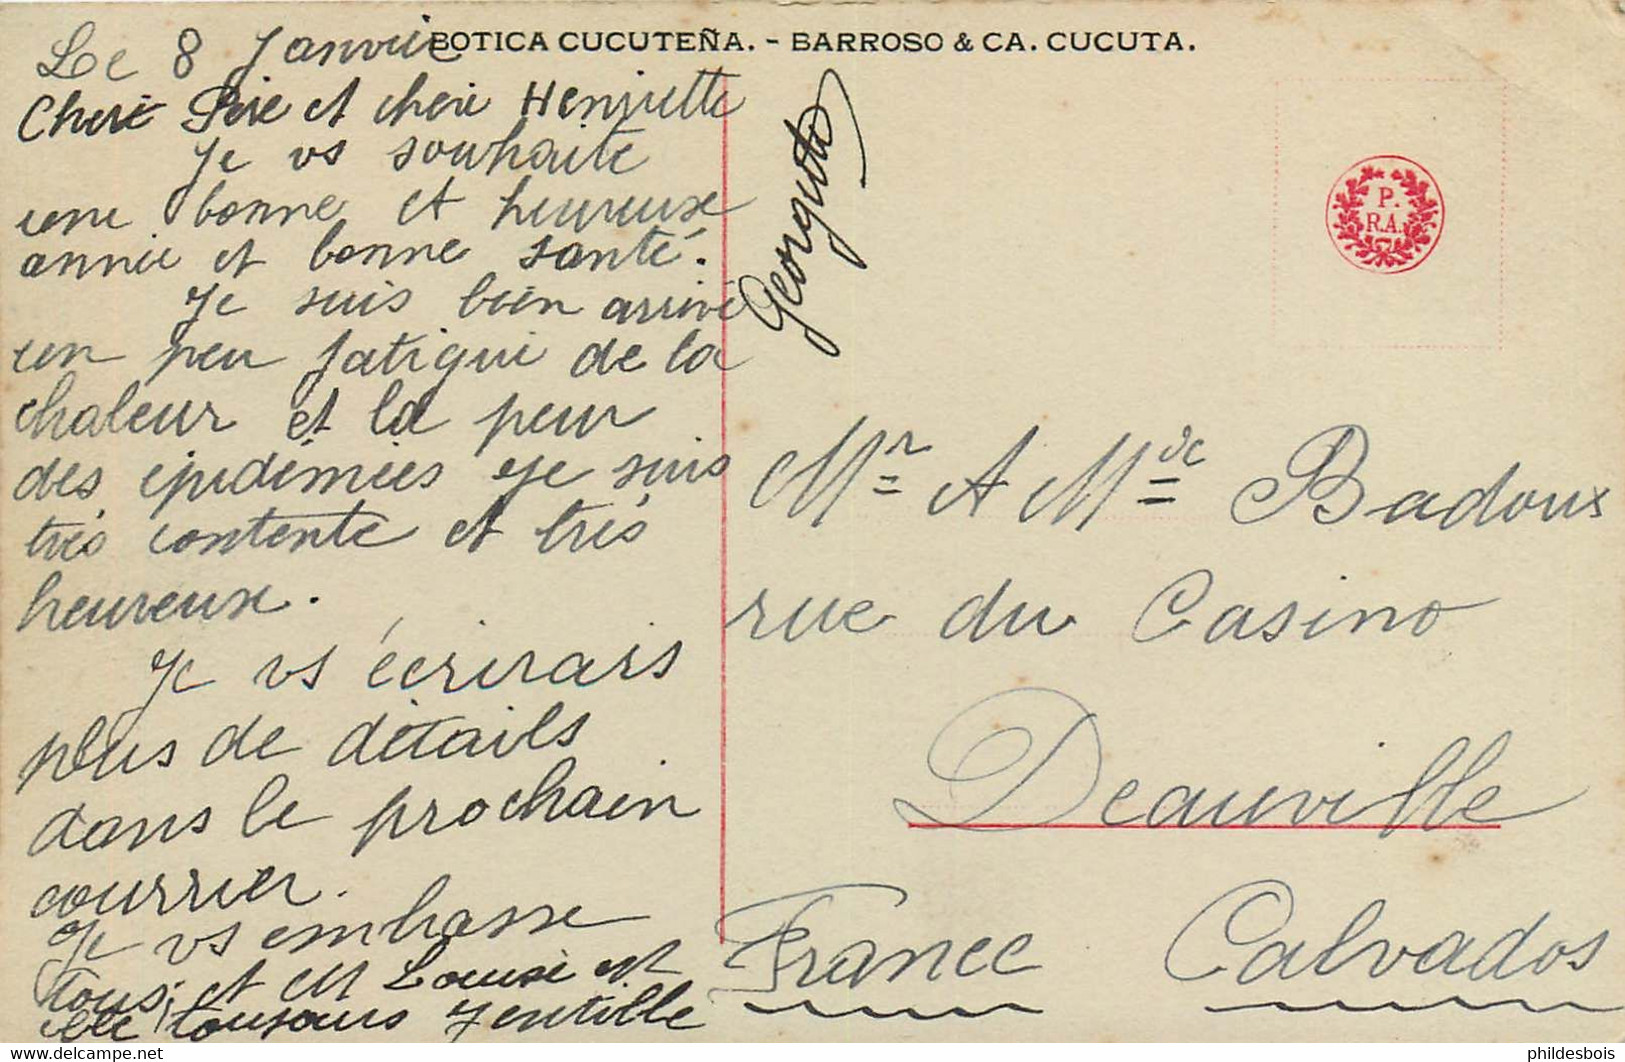 BOTICA CUCUTEÑA. - BARROSO & CA. CUCUTA.
Le 8 Janvier
Cheri Père et cherie Henriette
Je vs souhaite
une bonne et heureuse
année et bonne santé.
Je suis bien arrivé
un peu fatigué de la
chaleur et la peur
des épidémies je suis
très contente et très
heureuse.
Je vs écrirais
plus de détails
dans le prochain
courrier.
Je vs embrasse
tous, et Louise est
elle toujours gentille
Georgette
P.
R.A.
Mr A Mde Badoux
rue du Casino
Deauville
France Calvados
phildesbois